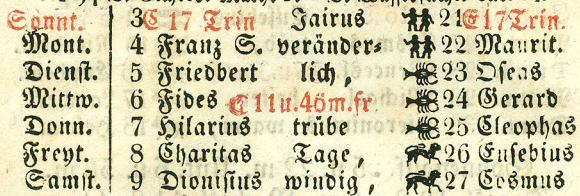 Sonnt. 3 C 17 Trin Jairus 21 E 17 Trin.
Mont. 4 Franz S. veränder⸗ 22 Maurit.
Dienst. 5 Friedbert lich, 23 Oseas
Mittw. 6 Fides C 11 u. 40 m. fr. 24 Gerard
Donn. 7 Hilarius trübe 25 Cleophas
Freyt. 8 Charitas Tage, 26 Eusebius
Samst. 9 Dionisius windig, 27 Cosmus